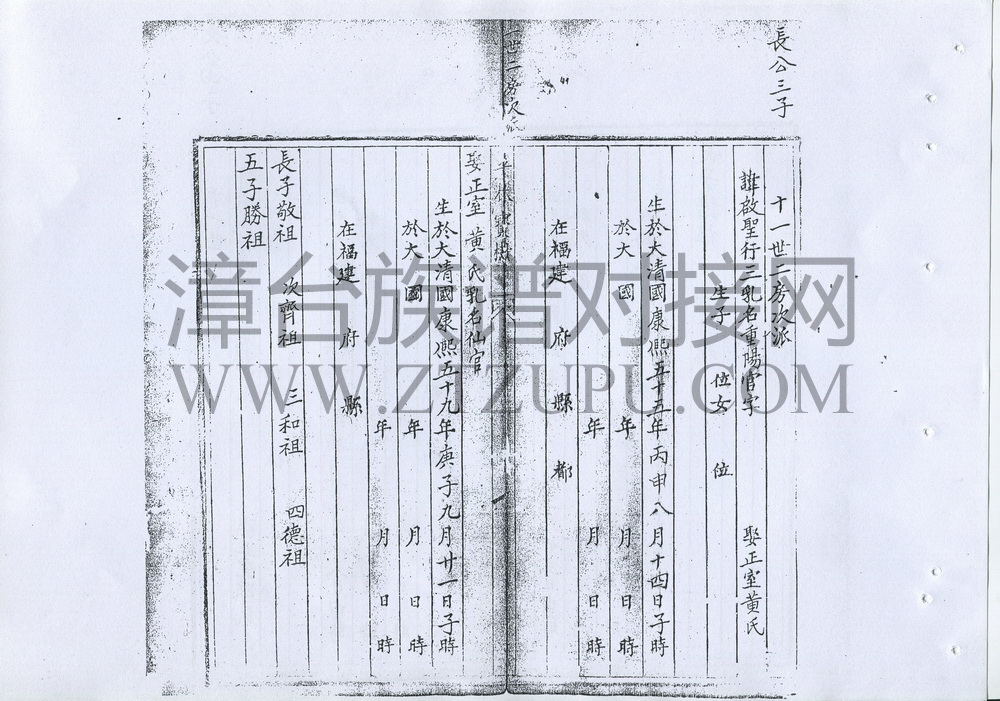 長公三子
十一世二房次派
諱啟聖行三乳名重陽官字 娶正室黃氏
生子 位女 位
生於大清國康熙五十五年丙申八月十四日子時
於大 國 年 月 日 時
年 月 日 時
在福建 府 縣 都
一世二房次派
娶正室黃氏乳名仙官
生於大清國康熙五十九年庚子九月廿一日子時
於大 國 年 月 日 時
年 月 日 時
在福建 府 縣
長子敬祖 次齊祖 三和祖 四德祖
五子勝祖
漳台族谱对接网
WWW.ZTZUPU.COM